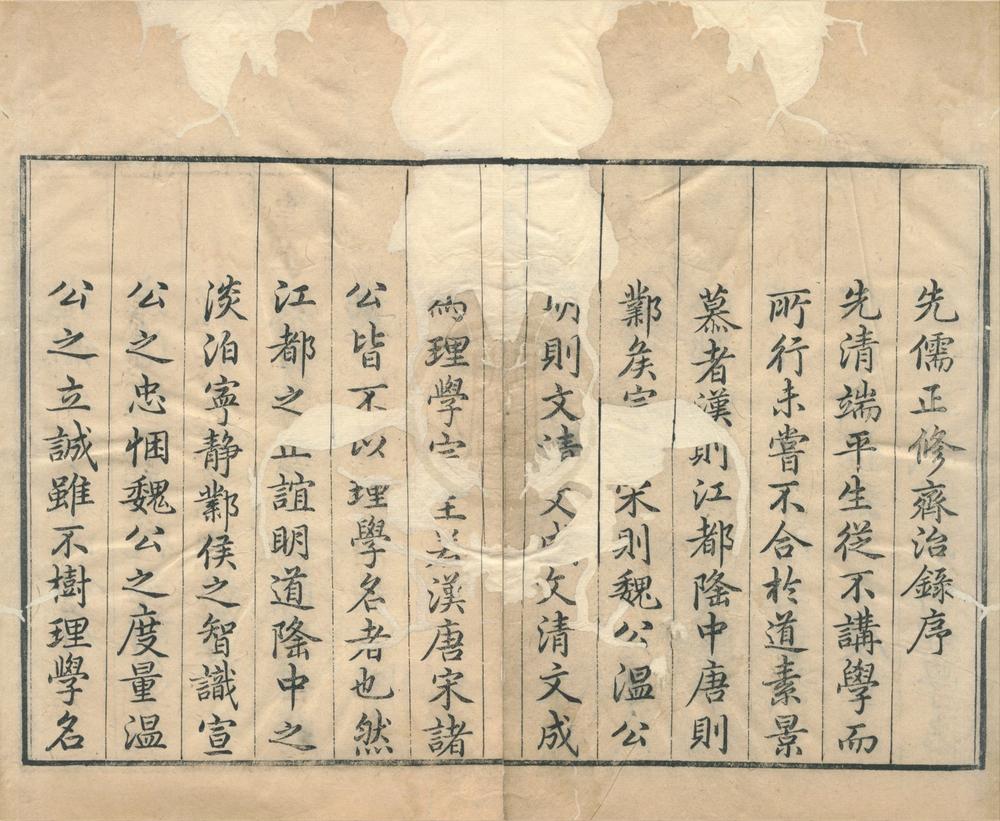 先儒正修齊治錄序
先清端平生從不講學而
所行未嘗不合於道素景
慕者漢則江都隆中唐則
鄴矦宣宋則魏公溫公
明則文清文成文清文成
為理學宗主若漢唐宋諸
公皆不以理學名者也然
江都之正誼明道隆中之
淡泊寧靜鄴侯之智識宣
公之忠悃魏公之度量溫
公之立誠雖不樹理學名